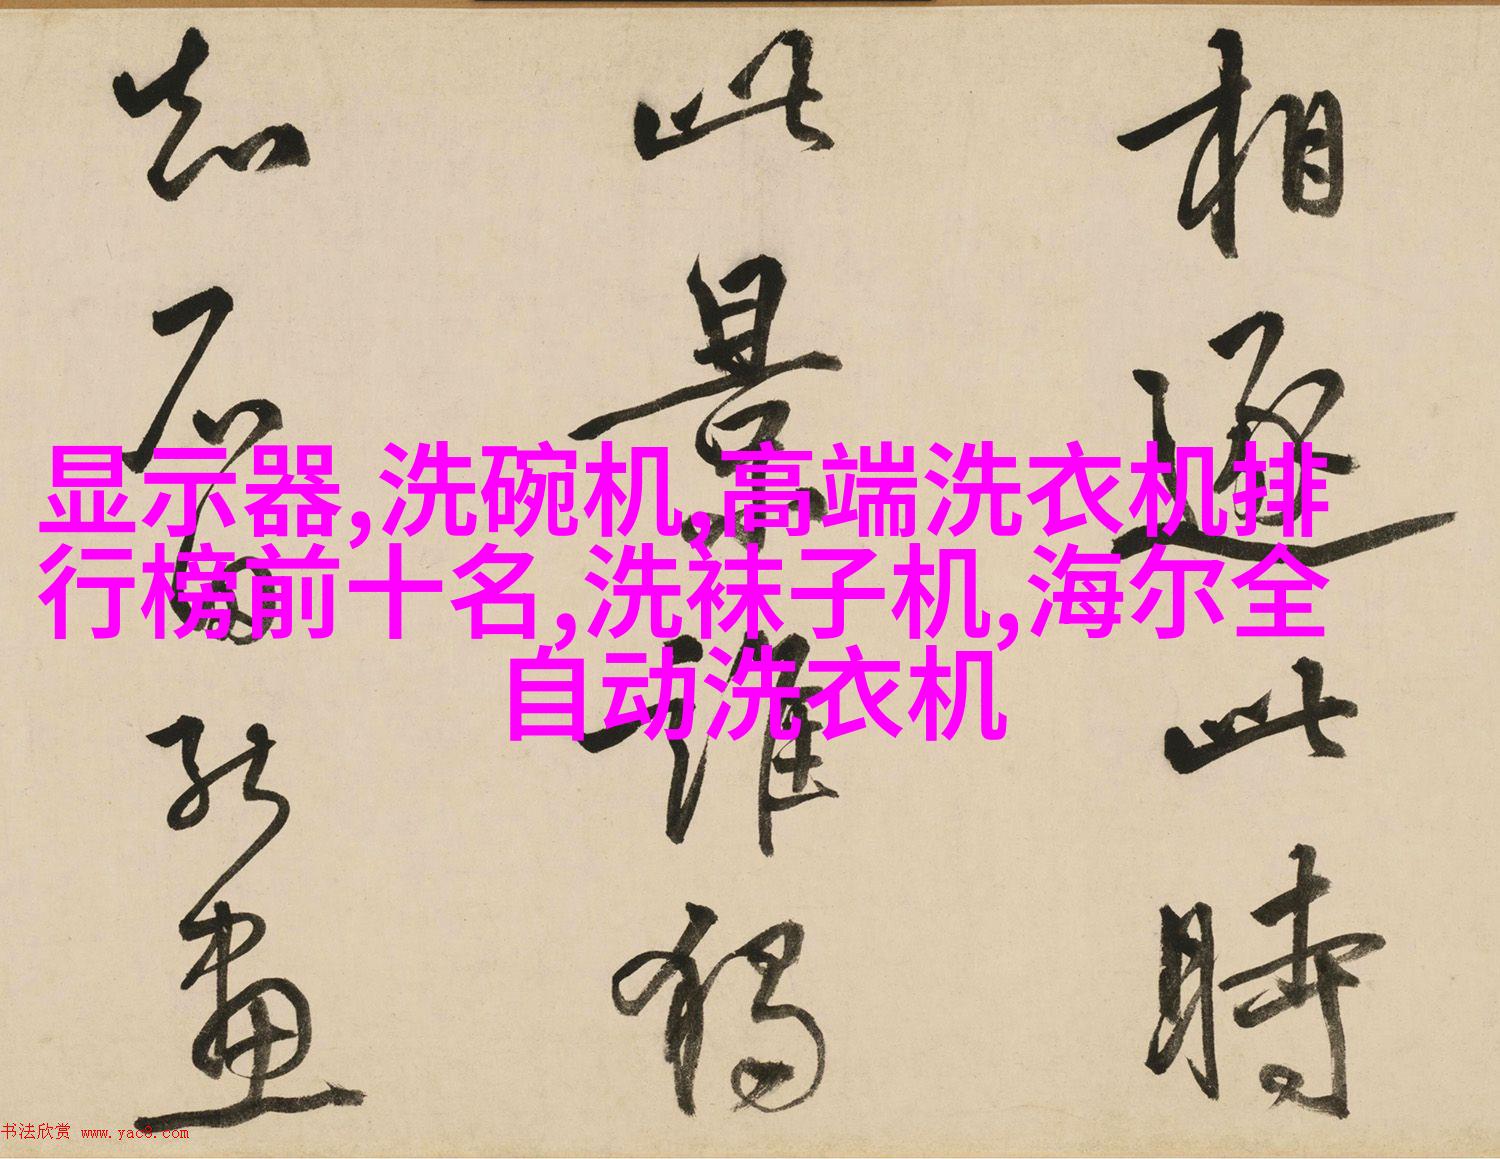 相逐此時
此景誰獨
知石田能畫
显示器,洗碗机,高端洗衣机排
行榜前十名,洗袜子机,海尔全
自动洗衣机
书法欣赏 www.yac8.com